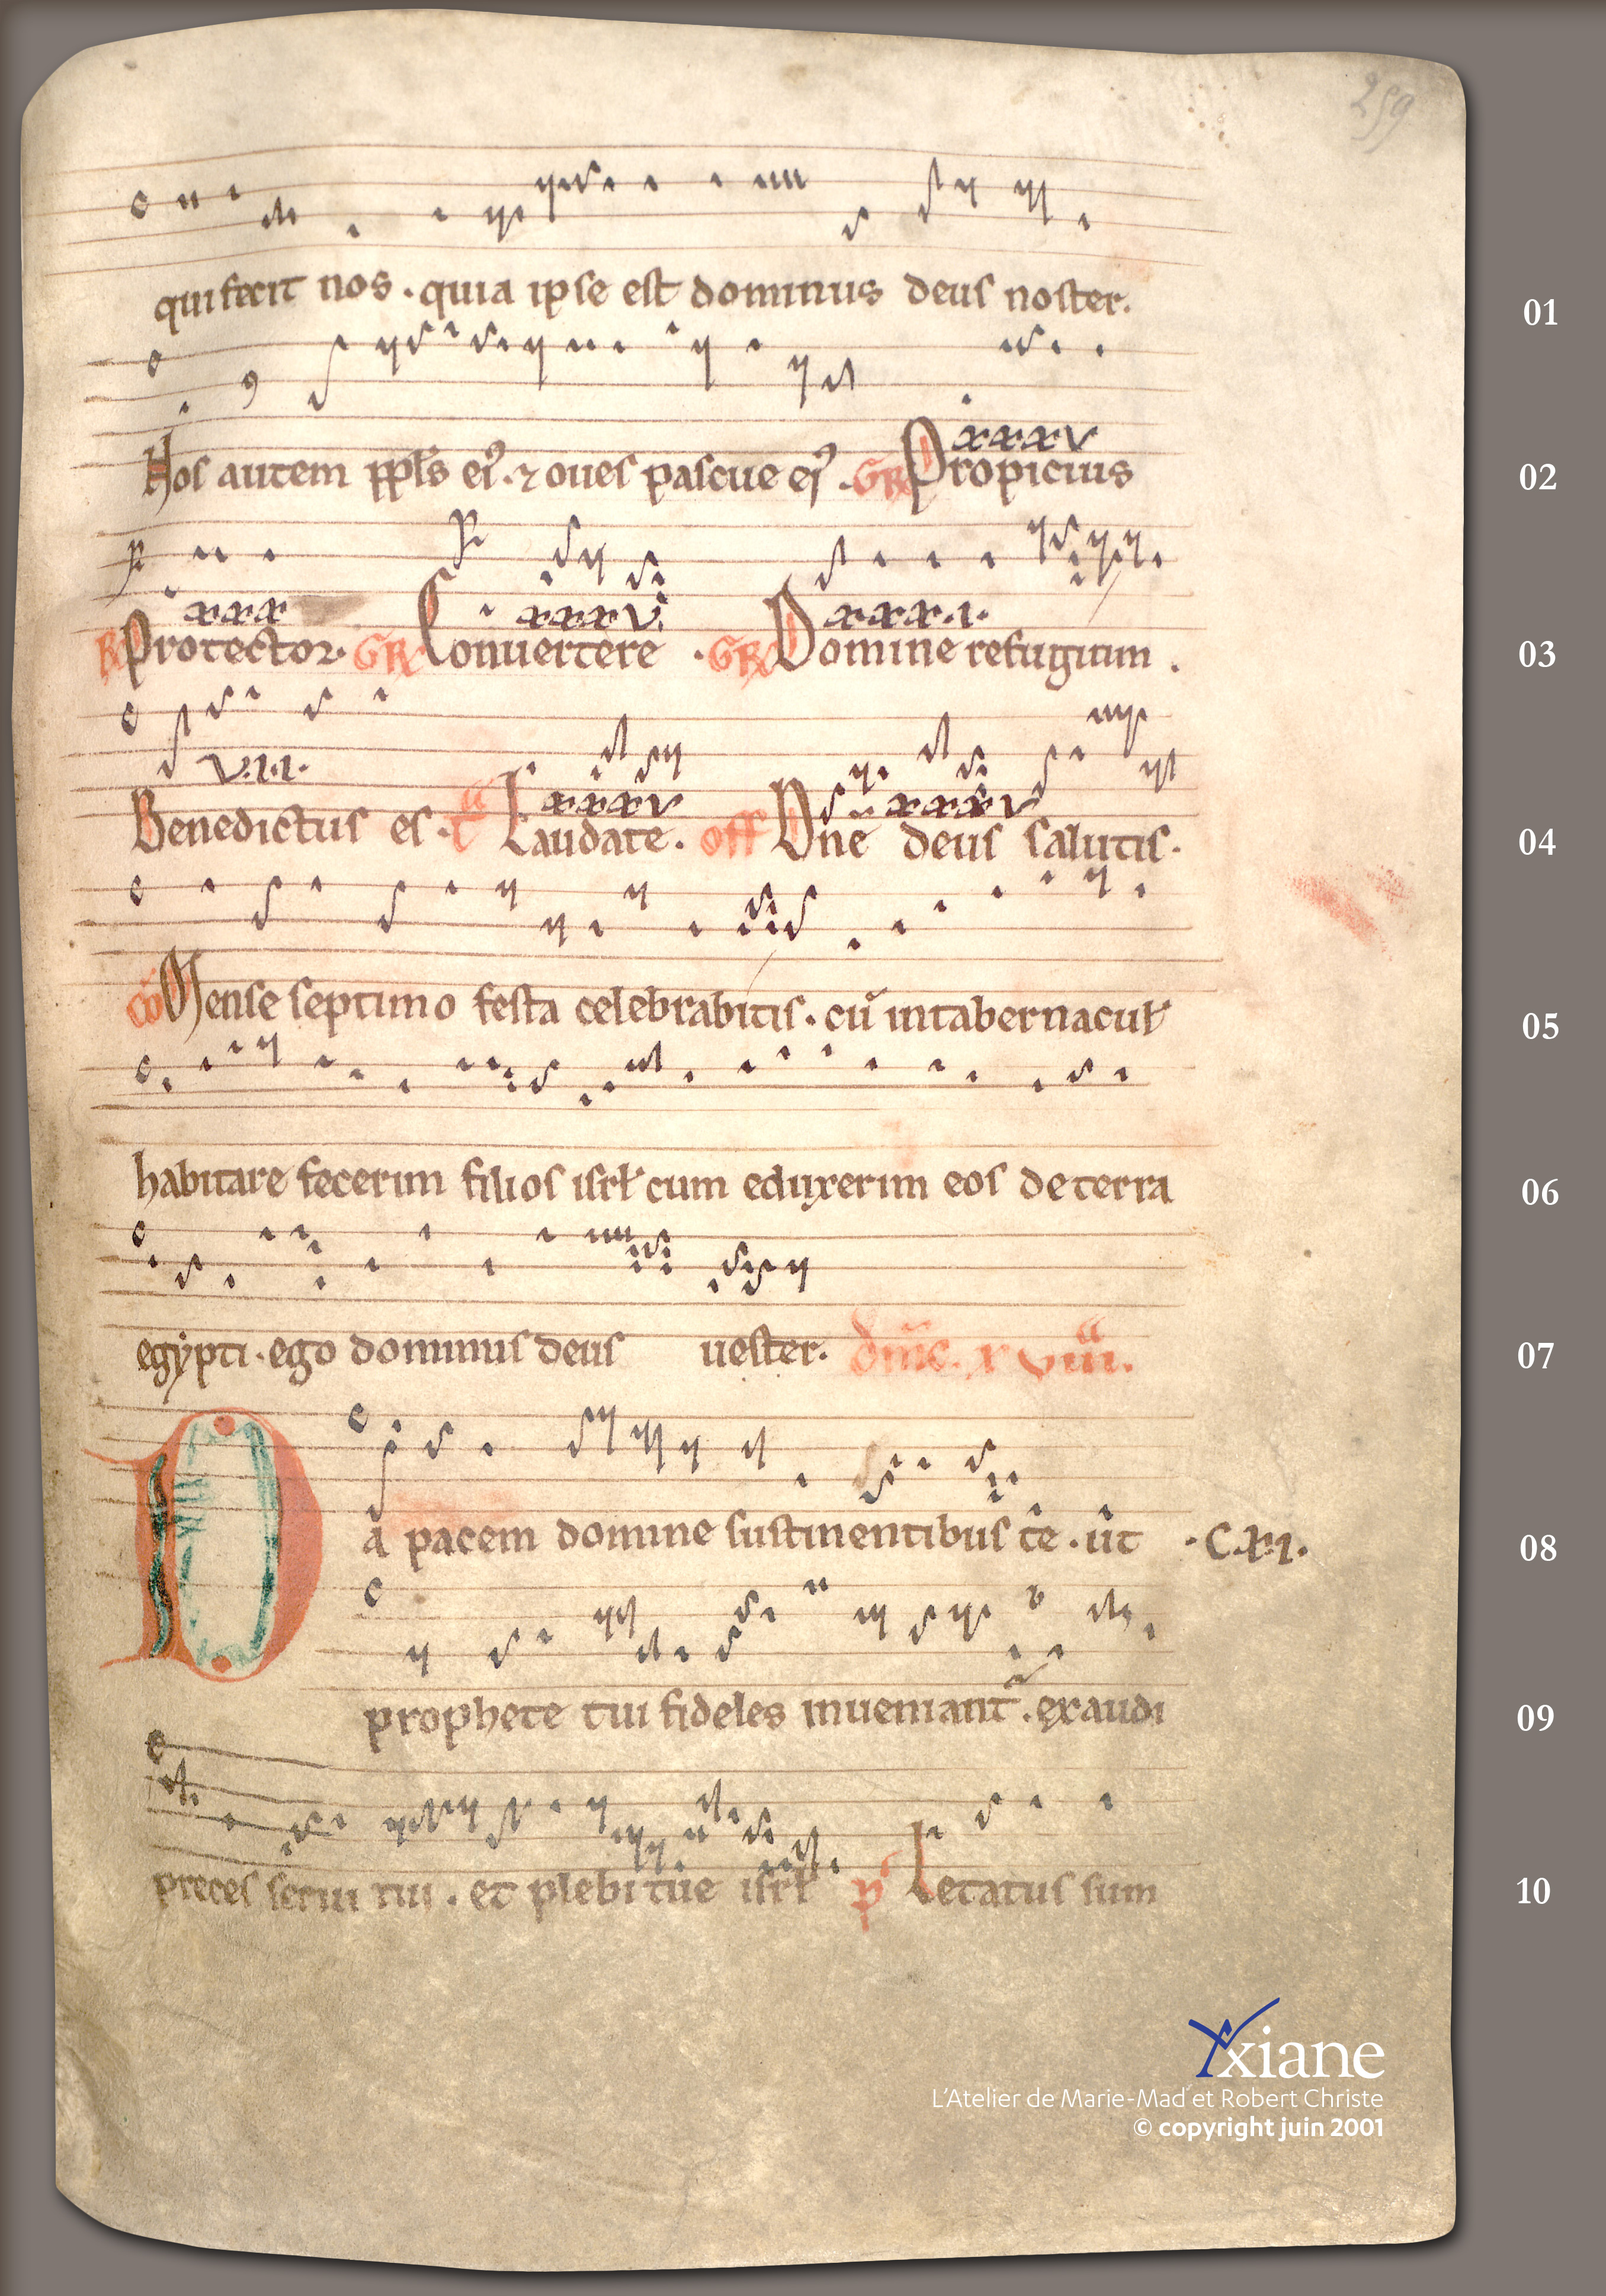 259
qui fecit nos . quia ipse est dominus deus noster. 01
xxxv
Nos autem ppl's ei9 . ⁊ oues pascue ei9 . GR Propicius 02
xxx xxxvi. xxx.i.
R Protector. GR Conuertere . GR Domine refugium . 03
v.i.i. xxxv xxxv
Benedictus es . Laudate . off Dne deus salutis . 04
co Mense septimo festa celebrabitis . cū in tabernacul' 05
habitare fecerim filios isrł cum eduxerim eos de terra 06
egypti . ego dominus deus uester. 07
Da pacem domine sustinentibus te . ut . C.xi. 08
prophete tui fideles inueniant' . exaudi 09
preces serui tui . et plebi tue isrł p' Letatus sum 10
Yxiane
L'Atelier de Marie-Mad et Robert Christe
© copyright juin 2001